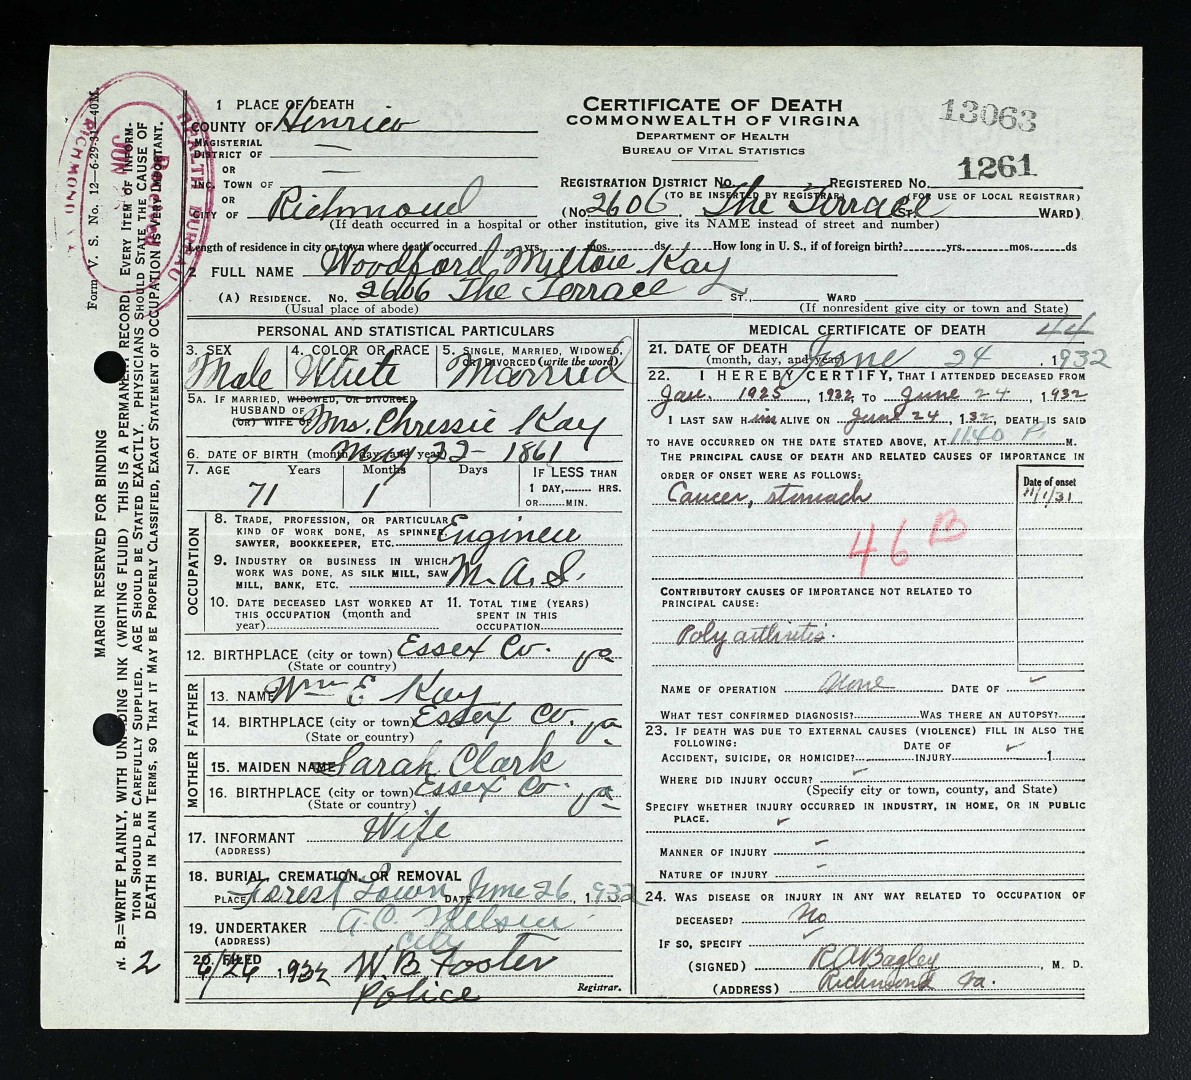 CERTIFICATE OF DEATH
COMMONWEALTH OF VIRGINIA
DEPARTMENT OF HEALTH
BUREAU OF VITAL STATISTICS
13063
1261
1 PLACE OF DEATH
COUNTY OF Henrico
MAGISTERIAL
DISTRICT OF —
OR —
INC. TOWN OF
OR
CITY OF Richmond
REGISTRATION DISTRICT No. REGISTERED No.
(TO BE INSERTED BY REGISTRAR) (FOR USE OF LOCAL REGISTRAR)
(No. 2606 The Terrace St. WARD)
(If death occurred in a hospital or other institution, give its NAME instead of street and number)
Length of residence in city or town where death occurred yrs. mos. ds. How long in U. S., if of foreign birth? yrs. mos. ds
2 FULL NAME Woodford Milton Kay
(A) RESIDENCE. No. 2606 The Terrace ST., WARD
(Usual place of abode) (If nonresident give city or town and State)
PERSONAL AND STATISTICAL PARTICULARS
3. SEX 4. COLOR OR RACE 5. SINGLE, MARRIED, WIDOWED,
OR DIVORCED (write the word)
Male White Married
5A. IF MARRIED, WIDOWED, OR DIVORCED
HUSBAND OF
(OR) WIFE OF Mrs. Chressie Kay
6. DATE OF BIRTH (month, day, and year) May 22 - 1861
7. AGE Years Months Days IF LESS THAN
1 DAY, HRS.
OR MIN.
71 1
OCCUPATION
8. TRADE, PROFESSION, OR PARTICULAR
KIND OF WORK DONE, AS SPINNER,
SAWYER, BOOKKEEPER, ETC. Engineer
9. INDUSTRY OR BUSINESS IN WHICH
WORK WAS DONE, AS SILK MILL, SAW
MILL, BANK, ETC. M. A. S.
10. DATE DECEASED LAST WORKED AT
THIS OCCUPATION (month and
year)
11. TOTAL TIME (YEARS)
SPENT IN THIS
OCCUPATION
12. BIRTHPLACE (city or town) Essex Co. Va
(State or country)
FATHER
13. NAME Wm E Kay
14. BIRTHPLACE (city or town) Essex Co. Va
(State or country)
MOTHER
15. MAIDEN NAME Sarah Clark
16. BIRTHPLACE (city or town) Essex Co. Va
(State or country)
17. INFORMANT Wife
(ADDRESS)
18. BURIAL, CREMATION, OR REMOVAL
PLACE Forest Lawn DATE June 26, 1932
19. UNDERTAKER A. C. Nelsen
(ADDRESS) City
20. FILED 6/26 1932 W. B. Foster
Police
Registrar.
MEDICAL CERTIFICATE OF DEATH
44
21. DATE OF DEATH
(month, day, and year) June 24, 1932
22. I HEREBY CERTIFY, THAT I ATTENDED DECEASED FROM
Jan. 1925, 1932 TO June 24, 1932
I LAST SAW H im ALIVE ON June 24, 1932, DEATH IS SAID
TO HAVE OCCURRED ON THE DATE STATED ABOVE, AT 1140 P. M.
THE PRINCIPAL CAUSE OF DEATH AND RELATED CAUSES OF IMPORTANCE IN
ORDER OF ONSET WERE AS FOLLOWS:
Date of onset
Cancer, stomach 11/1/31
46 B
CONTRIBUTORY CAUSES OF IMPORTANCE NOT RELATED TO
PRINCIPAL CAUSE:
Polyarthritis.
NAME OF OPERATION None DATE OF
WHAT TEST CONFIRMED DIAGNOSIS? WAS THERE AN AUTOPSY?
23. IF DEATH WAS DUE TO EXTERNAL CAUSES (VIOLENCE) FILL IN ALSO THE
FOLLOWING:
ACCIDENT, SUICIDE, OR HOMICIDE? DATE OF INJURY 1
WHERE DID INJURY OCCUR?
(Specify city or town, county, and State)
SPECIFY WHETHER INJURY OCCURRED IN INDUSTRY, IN HOME, OR IN PUBLIC
PLACE.
MANNER OF INJURY
NATURE OF INJURY
24. WAS DISEASE OR INJURY IN ANY WAY RELATED TO OCCUPATION OF
DECEASED? No
IF SO, SPECIFY
(SIGNED) R A Bagley, M. D.
(ADDRESS) Richmond Va.
Form V. S. No. 12—6-29-31—40M.
MARGIN RESERVED FOR BINDING
N. B.—WRITE PLAINLY, WITH UNFADING INK (WRITING FLUID) THIS IS A PERMANENT RECORD. EVERY ITEM OF INFORMA-
TION SHOULD BE CAREFULLY SUPPLIED. AGE SHOULD BE STATED EXACTLY. PHYSICIANS SHOULD STATE THE CAUSE OF
DEATH IN PLAIN TERMS, SO THAT IT MAY BE PROPERLY CLASSIFIED, EXACT STATEMENT OF OCCUPATION IS VERY IMPORTANT.
2
HEALTH BUREAU
RICHMOND